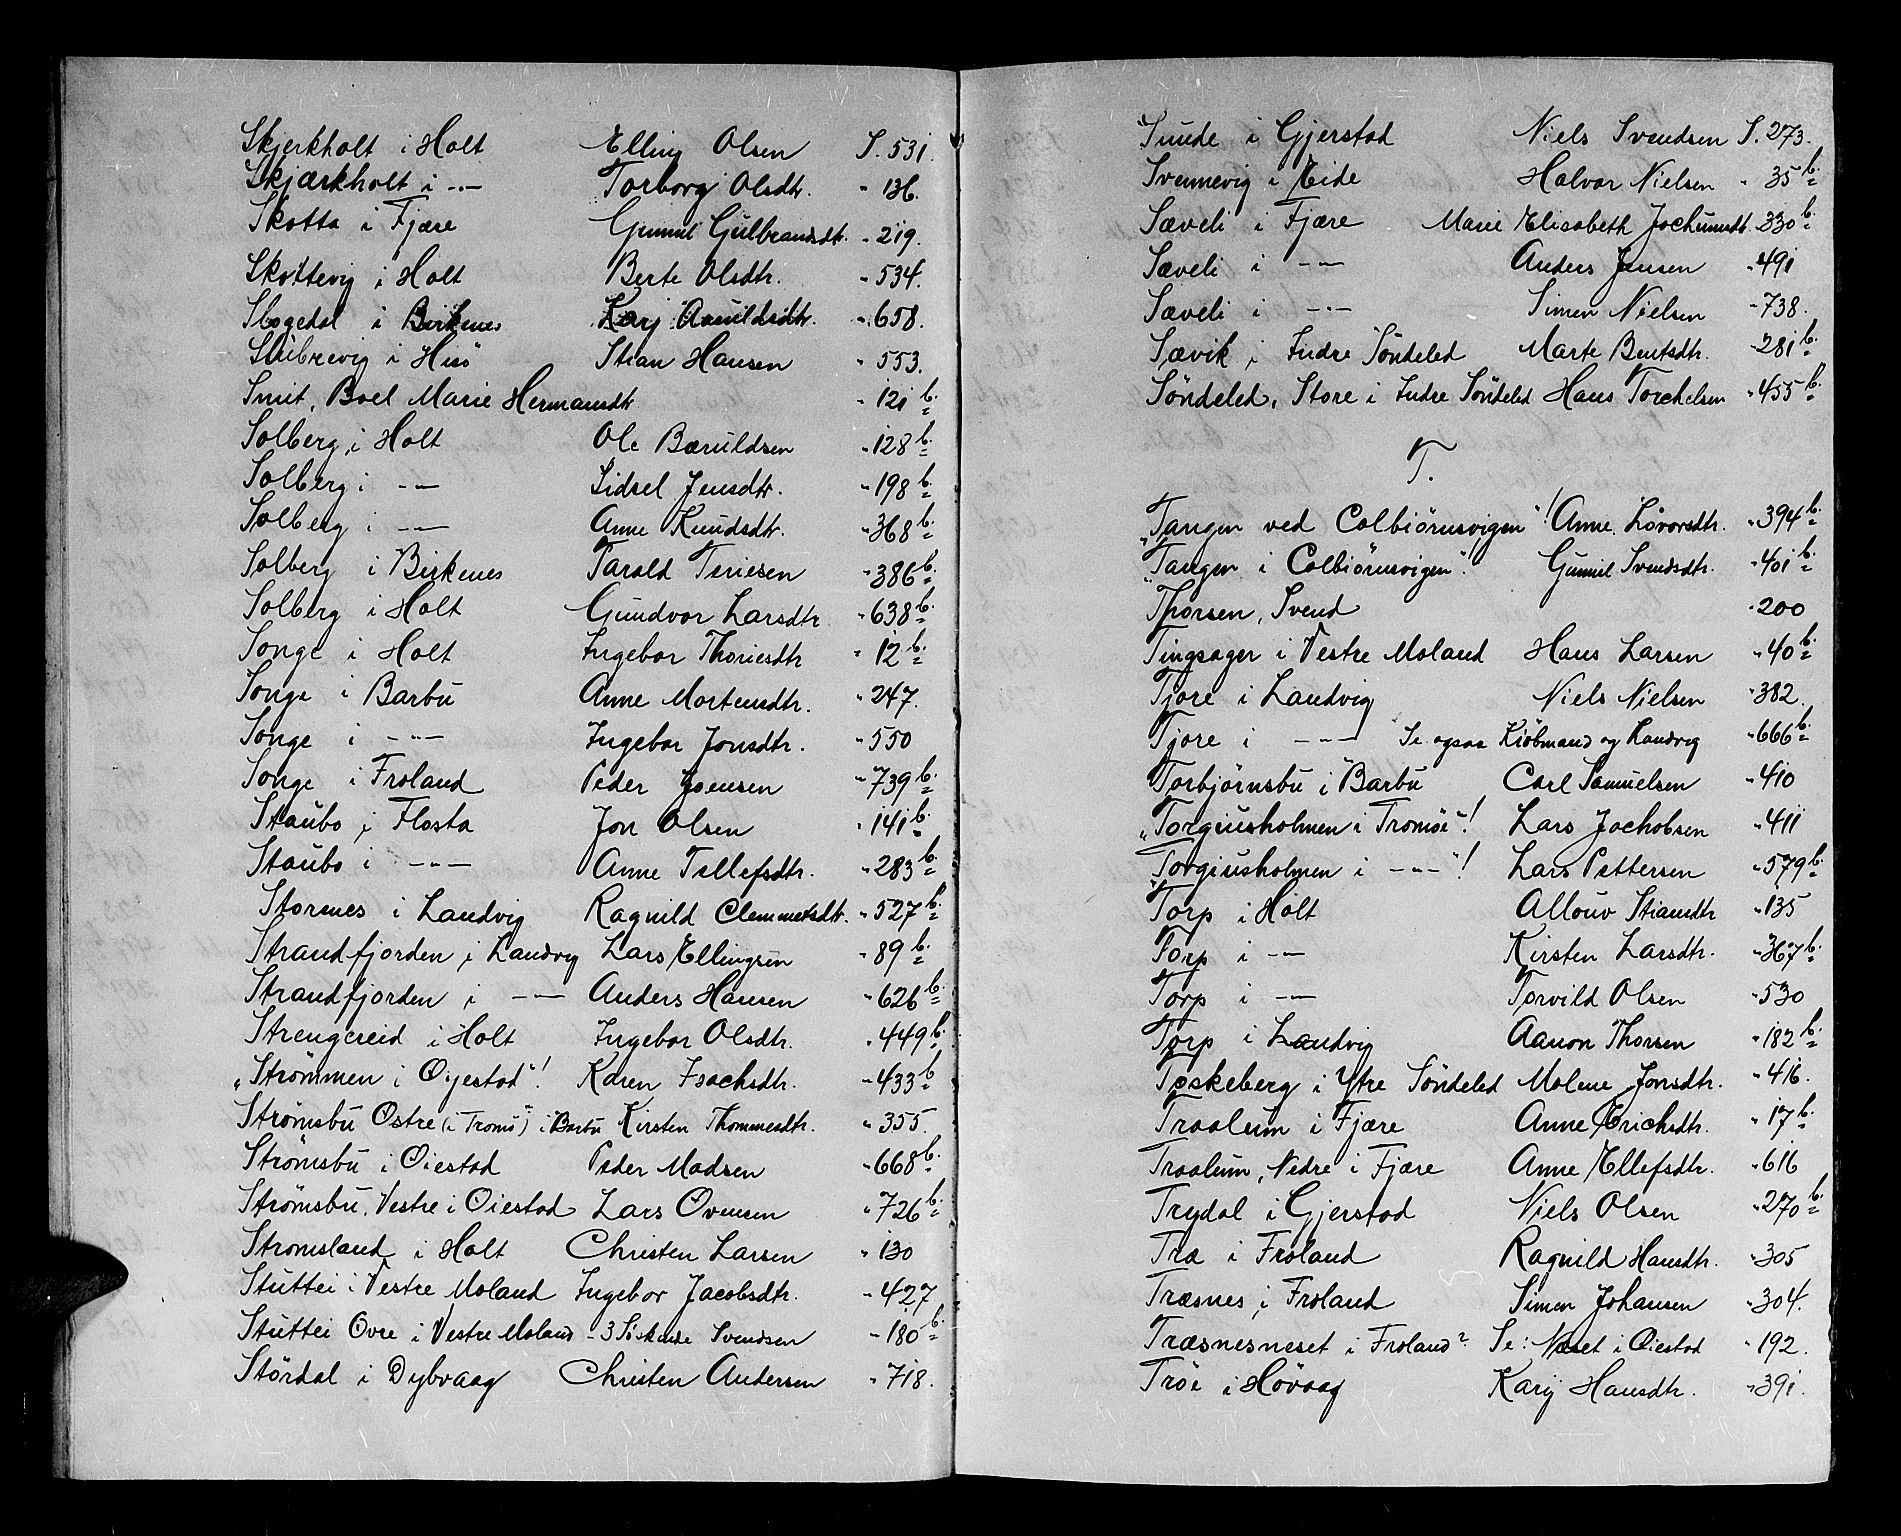 Skjerkholt i Holt Elling Olsen S. 531.
Skjærkholt i -"- Torborg Olsdtr. " 136.
Skotta i Fjære Gunnil Gulbrandsdtr. " 219.
Skottevig i Holt Berte Olsdtr. " 534.
Slogedal i Birkenes Karj Asuildsdtr. " 658.
Slubrevig i Hisö Stian Hansen " 553.
Smit, Boel Marie Hermansdtr " 121 b.
Solberg i Holt Ole Bæruldsen " 128 b.
Solberg i -"- Sidsel Jensdtr. " 198 b.
Solberg i -"- Anne Knudsdtr. " 368 b.
Solberg i Birkenes Tarald Teriesen " 386 b.
Solberg i Holt Gundvor Larsdtr " 638 b.
Songe i Holt Ingebor Thoriesdtr " 12 b.
Songe i Barbu Anne Mortensdtr. " 247.
Songe i -"- Ingebor Jonsdtr. " 550
Songe i Froland Peder Joensen " 739 b.
Staubo i Flosta Jon Olsen " 141 b.
Staubo i -"- Anne Tellefsdtr. " 283 b.
Stornes i Landvig Ragnild Clemmetsdtr. " 527 b.
Strandfjorden i Landvig Lars Ellingsen " 89 b.
Strandfjorden i -"- Anders Hansen " 626 b.
Strengereid i Holt Ingebor Olsdtr. " 449 b.
"Strömmen i Oyestad"! Karen Isachsdtr. " 433 b.
Strömsbu Ostre (i Tromö) i Barbu Kirsten Thommesdtr. " 355.
Strömsbu i Oiestad Peder Madsen " 668 b.
Strömsbu, Vestre i Oiestad Lars Ovensen " 726 b.
Stromsland i Holt Christen Larsen " 130
Stuttei i Vestre Moland Ingebor Jacobsdtr. " 427
Stuttei Ovre i Vestre Moland - 3 Söskende Svendsen " 180 b.
Stördal i Dybvaag Christen Andersen " 718.
Sunde i Gjerstad Niels Svendsen S. 273.
Svennevig i Eide Halvor Nielsen " 35 b.
Sæveli i Fjære Marie Elisabeth Jochumsdt. 330 b.
Sæveli i -"- Anders Jensen " 491
Sæveli i -"- Simen Nielsen " 738.
Sævik i Indre Söndeled Marte Bentsdtr. " 281 b.
Söndeled, Store i Indre Söndeled Hans Torchelsen " 455 b.
T.
"Tangen ved Colbiörnsvigen"! Anne Lövorsdtr. " 394 b.
"Tangen i Colbiörnsvigen". Gunnil Svendsdtr. " 401 b.
Thorsen, Svend " 200
Tingsager i Vestre Moland Hans Larsen " 40 b.
Tjore i Landvig Niels Nielsen " 382
Tjore i -"- Se ogsaa Kiöbmand og Landvig " 666 b.
Torbjörnsbu i Barbu Carl Samuelsen " 410
"Torgiusholmen i Tromöe"! Lars Jachobsen " 411
"Torgiusholmen i -"-"! Lars Pettersen " 579 b.
Torp i Holt Allouv Stiansdtr " 135
Torp i -"- Kirsten Larsdtr. " 367 b.
Torp i -"- Torvild Olsen " 530
Torp i Landvig Aanon Thorsen " 182 b.
Toskeberg i Ytre Söndeled Malene Jonsdtr. " 416.
Traalum i Fjære Anne Erichsdtr. " 17 b.
Traalum, Nedre i Fjære Anne Ellefsdtr. " 616
Trydal i Gjerstad Niels Olsen " 270 b.
Træ i Froland Ragnild Hansdtr. " 305
Træsnes i Froland Simen Johansen " 304.
Træsnesneset i Froland? Se: Næset i Oiestad " 192.
Tröe i Hövaag Karij Hansdtr. " 391.